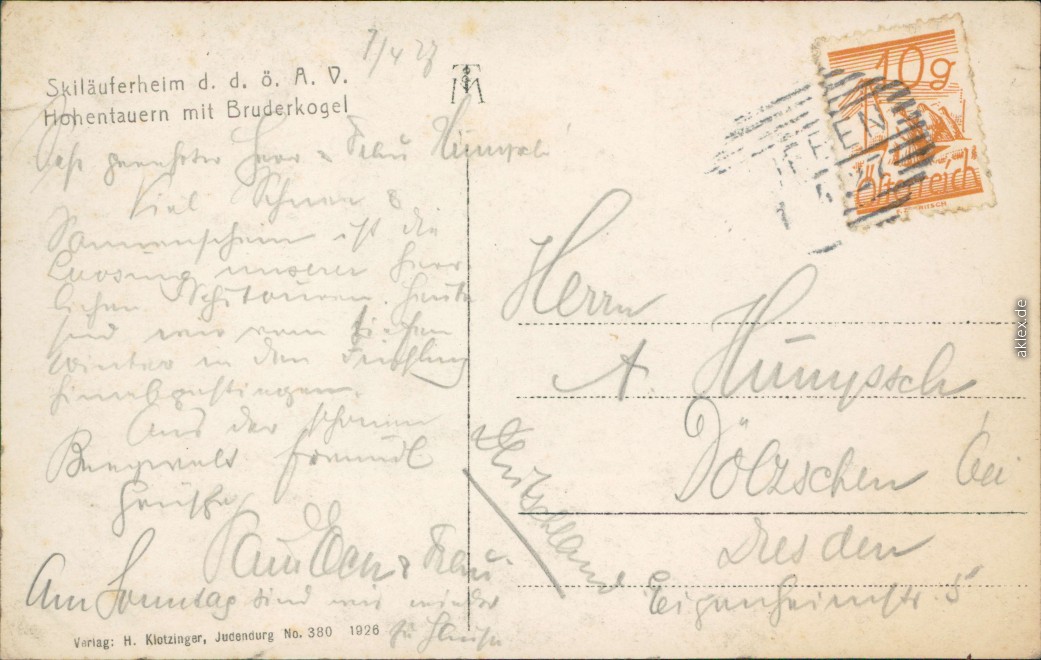 7/4 27
Skiläuferheim d. d. ö. A. V.
Hohentauern mit Bruderkogel
Sehr geehrter Herr & Frau Humpsch
Viel Schnee &
Sonnenschein ist die
Loosung unserer herr-
lichen Schitouren. Heute
sind wir vom tiefen
Winter in den Frühling
hinabgestiegen.
Aus der schönen
Bergwelt freundl
Grüsse
& Frau
Am Sonntag sind wir wieder
zu Hause
Verlag: H. Klotzinger, Judendurg No. 380 1926
10g
Österreich
Herrn
A. Humpsch
Dölzschen bei
Dresden
Eigenheimstr. 5
Deutschland
aklex.de